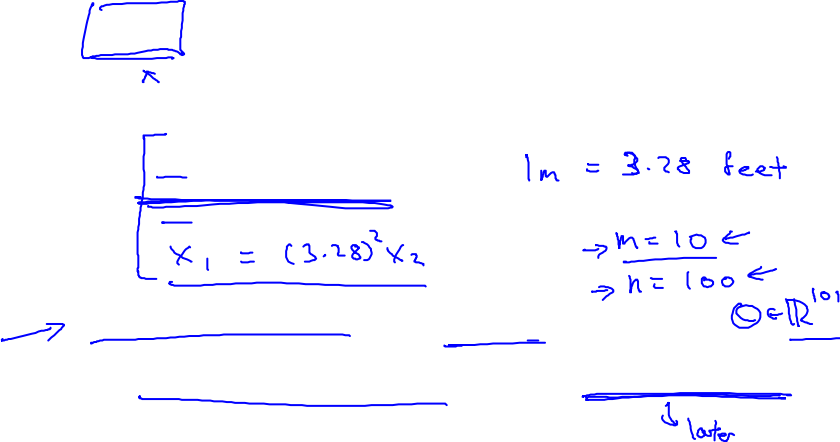 1m = 3.28 feet
x₁ = (3.28)² x₂
→ m = 10 ←
→ n = 100 ←
θ ∈ ℝ¹⁰¹
↓ later